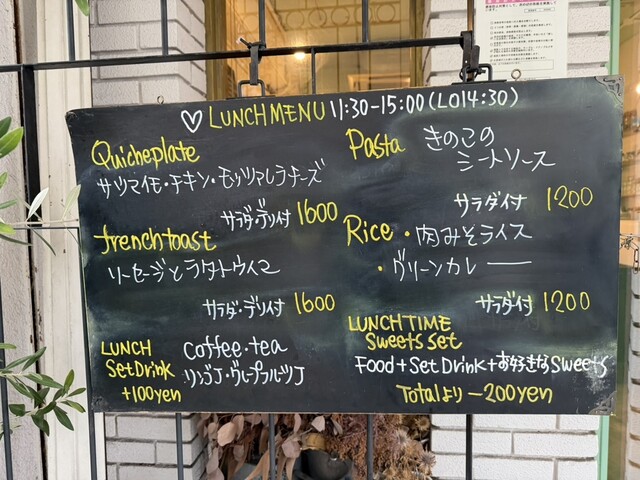 ♡ LUNCH MENU 11:30-15:00 (LO14:30)
Quicheplate
サツマイモ・チキン・モッツァレラチーズ
サラダ・デリ付 1600
frenchtoast
ソーセージとラタトゥイユ
サラダ・デリ付 1600
LUNCH
SetDrink
+100yen
coffee・tea
リンゴJ・グレープフルーツJ
Pasta きのこの
ミートソース
サラダ付 1200
Rice ・肉みそライス
・グリーンカレー
サラダ付 1200
LUNCHTIME
Sweets set
Food+SetDrink+お好きなSweets
Totalより-200yen